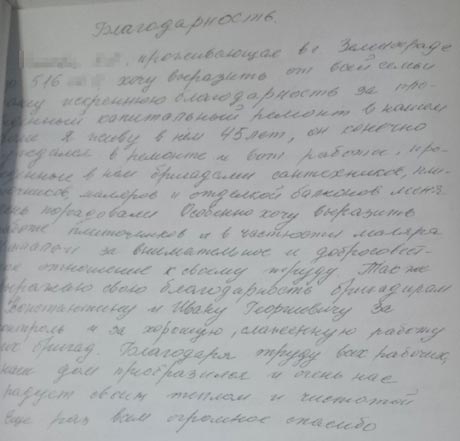 Благодарность.
проживающая в г Зеленограде
516 хочу выразить от всей семьи
искреннюю благодарность за про-
капитальный ремонт в нашем
Я живу в нём 45 лет, он конечно
в ремонте и вот работы, про-
в нём бригадами сантехников, пли-
точников, маляров и отделкой балконов меня
порадовали Особенно хочу выразить
плиточников и в частности маляра
за внимательное и добросовест-
отношение к своему труду. Так же
выражаю свою благодарность бригадирам
Константину и Ивану Георгиевичу за
контроль и за хорошую, слаженную работу
их бригад. Благодаря труду всех рабочих,
наш дом преобразился и очень нас
радует своим теплом и чистотой
Еще раз всем огромное спасибо